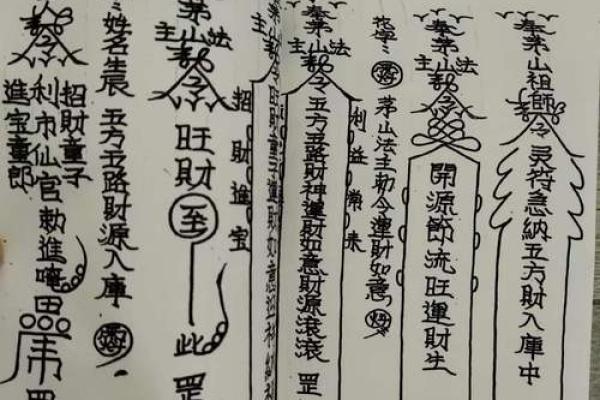 奉茅山祖師令灵符急納五方財入庫中
奉茅山法主勅令開源節流旺運財生
茅山法主勅令運財如意
奉茅山法主勅令五方五路財神運財如意財源滾滾罡
利益常来
令旺財童子運財如意
招財進宝
茅山法主勅令旺財至此罡
姓名生辰五方五路財源入庫
招財童子
令利市仙官勅進唵田
進宝童郎